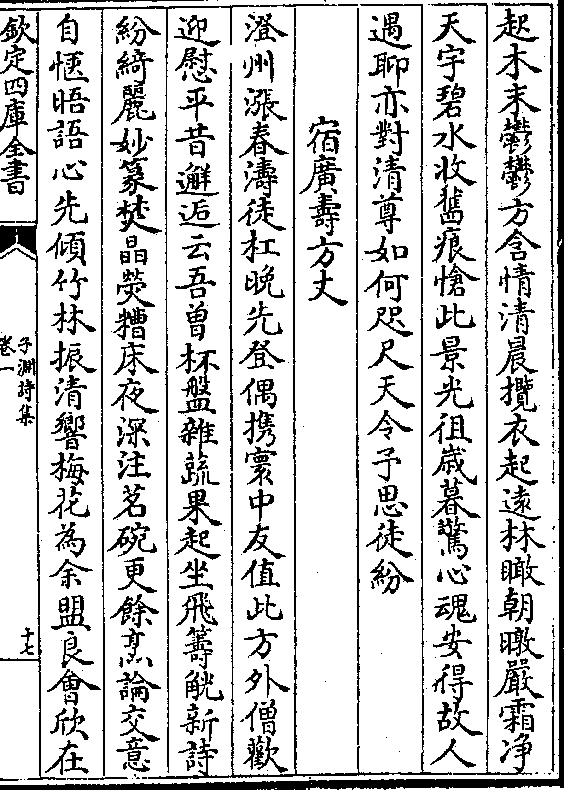 起木末鬱鬱方含情清晨攬衣起遠林瞰朝暾嚴霜净
天宇碧水收舊痕愴此景光徂歲暮驚心魂安得故人
遇聊亦對清尊如何咫尺天令予思徒紛
宿廣壽方丈
澄州漲春濤徒杠晚先登偶携寰中友值此方外僧歡
迎慰平昔邂逅云吾曽杯盤雜蔬果起坐飛籌觥新詩
紛綺麗妙篆焚晶熒糟床夜深注茗碗更餘烹論交意
自愜晤語心先傾竹林振清響梅花為余盟良會欣在
欽定四庫全書
子淵詩集
卷一
十七